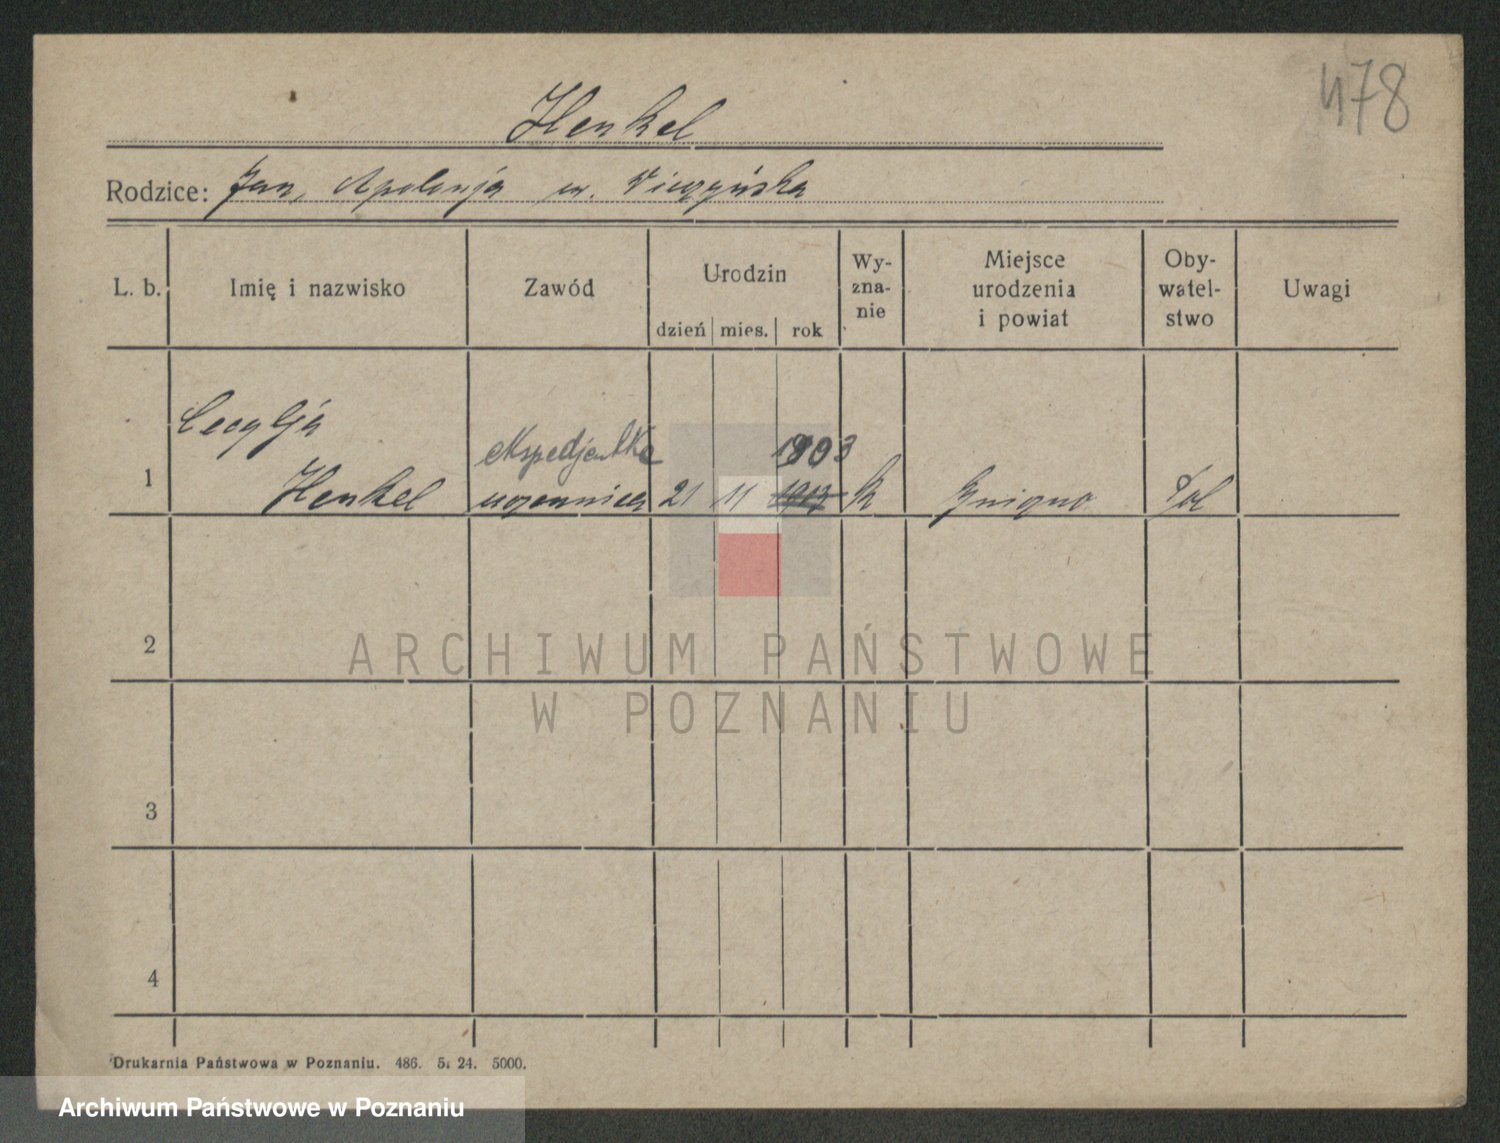 478
Henkel
Rodzice: Jan, Apolonja
L. b. Imię i nazwisko Zawód Urodzin Wy-zna-nie Miejsce urodzenia i powiat Oby-watel-stwo Uwagi
dzień mies. rok
Cecylja
ekspedjentka 1903
1 Henkel uczennica 21 11 K Pol
2
ARCHIWUM PAŃSTWOWE
W POZNANIU
3
4
Drukarnia Państwowa w Poznaniu. 486. 5. 24. 5000.
Archiwum Państwowe w Poznaniu